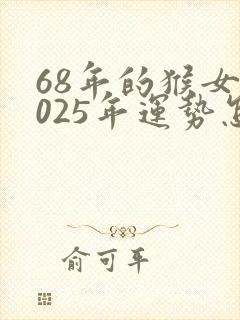 68年的猴女
025年運勢怎
俞可平